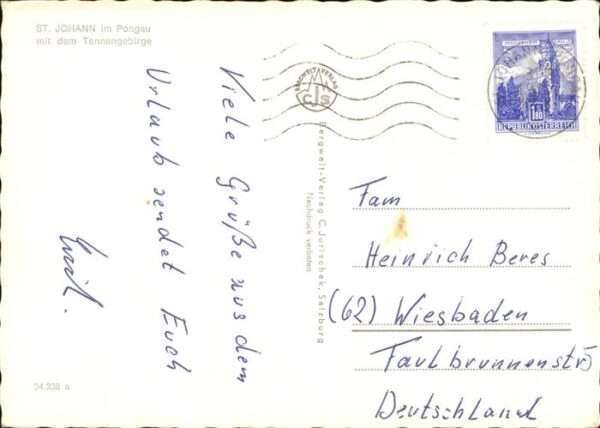 ST. JOHANN im Pongau
mit dem Tennengebirge
Viele Grüße aus dem
Urlaub sendet Euch
Emil.
24.938 a
BERGWELT-VERLAG
CJS
Bergwelt-Verlag C. Jurischek, Salzburg
Nachdruck verboten
1.80
REPUBLIK ÖSTERREICH
Fam
Heinrich Beres
(62) Wiesbaden
Faulbrunnenstr 5
Deutschland